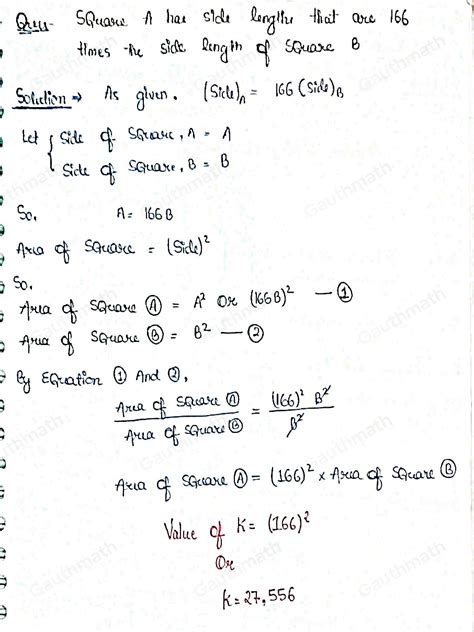 Ques- Square A has side lengths that are 166
times the side length of square B
Solution → As given. (Side)A = 166 (Side)B
Let { Side of Square, A = A
Side of Square, B = B
So, A = 166B
Area of Square = (Side)²
So.
Area of Square Ⓐ = A² Or (166B)² — ①
Area of Square Ⓑ = B² — ②
By Equation ① And ②,
Area of Square Ⓐ / Area of Square Ⓑ = (166)² B² / B²
Area of Square Ⓐ = (166)² × Area of Square Ⓑ
Value of K = (166)²
Or
K = 27,556
Gauthmath